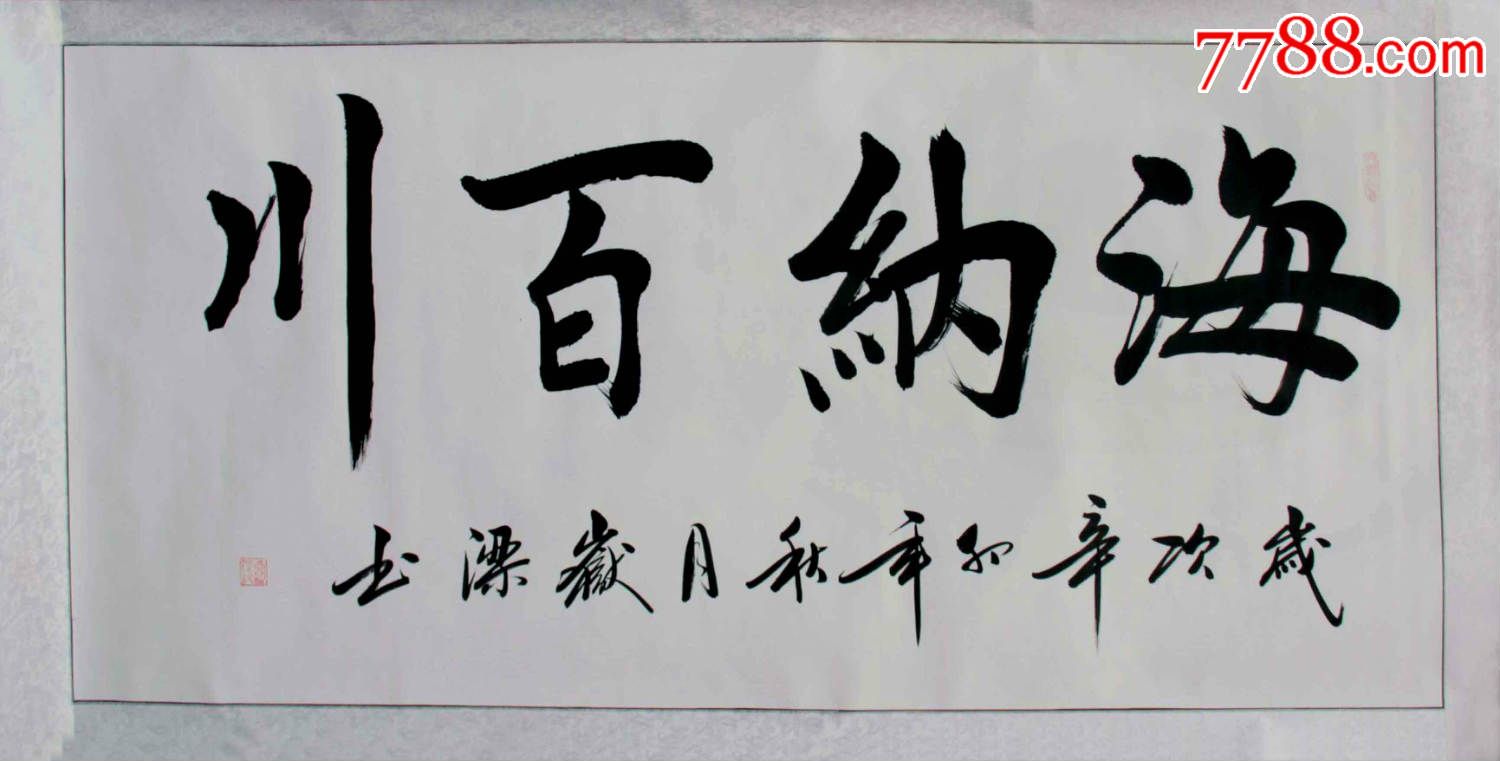 7788.com
海納百川
歲次辛卯年秋月嶽梁书